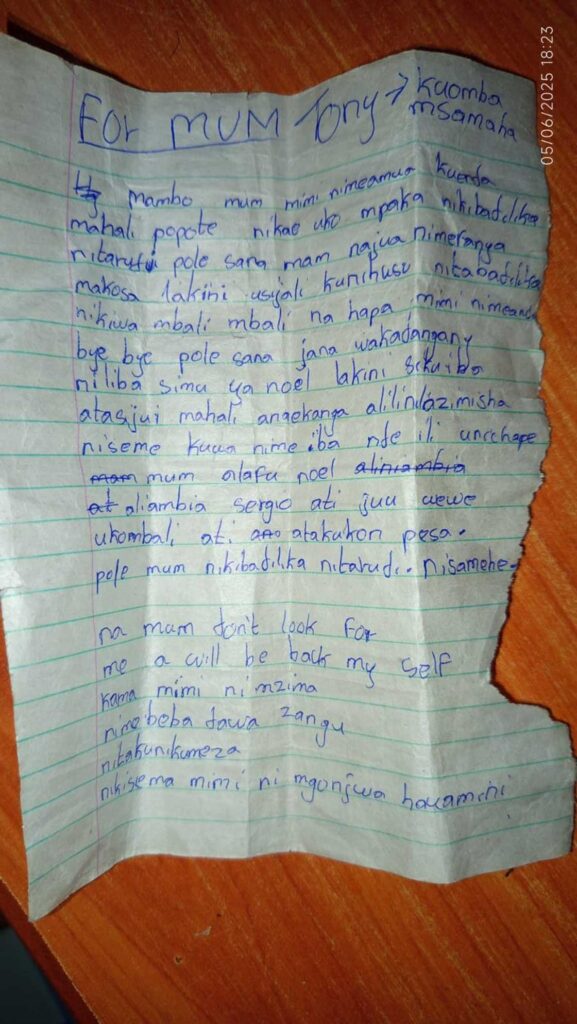 05/06/2025 18:23
For MUM Tony → kuomba
msamaha
mambo mum mimi nimeamua kuenda
mahali popote nikae uko mpaka nikibadilika
nitarudi pole sana mam najua nimefanya
makosa lakini usijali kunihusu nitabadilika
nikiwa mbali mbali na hapa mimi nimeenda
bye bye pole sana jana wakadangany
niliba simu ya noel lakini sikuiba
atasijui mahali angekanga alilindazimisha
niseme kuwa nime iba nde ili unichape
mam mum alafu noel aliniambia
at aliambia sergio ati juu wewe
ukombali ati ano atakukon pesa.
pole mum nikibadilika nitarudi.. nisamehe.
na mam don't look for
me a will be back my self
kama mimi ni mzima
nimebeba dawa zangu
nitakunikumeza
nikisema mimi ni mgonjwa hawamini